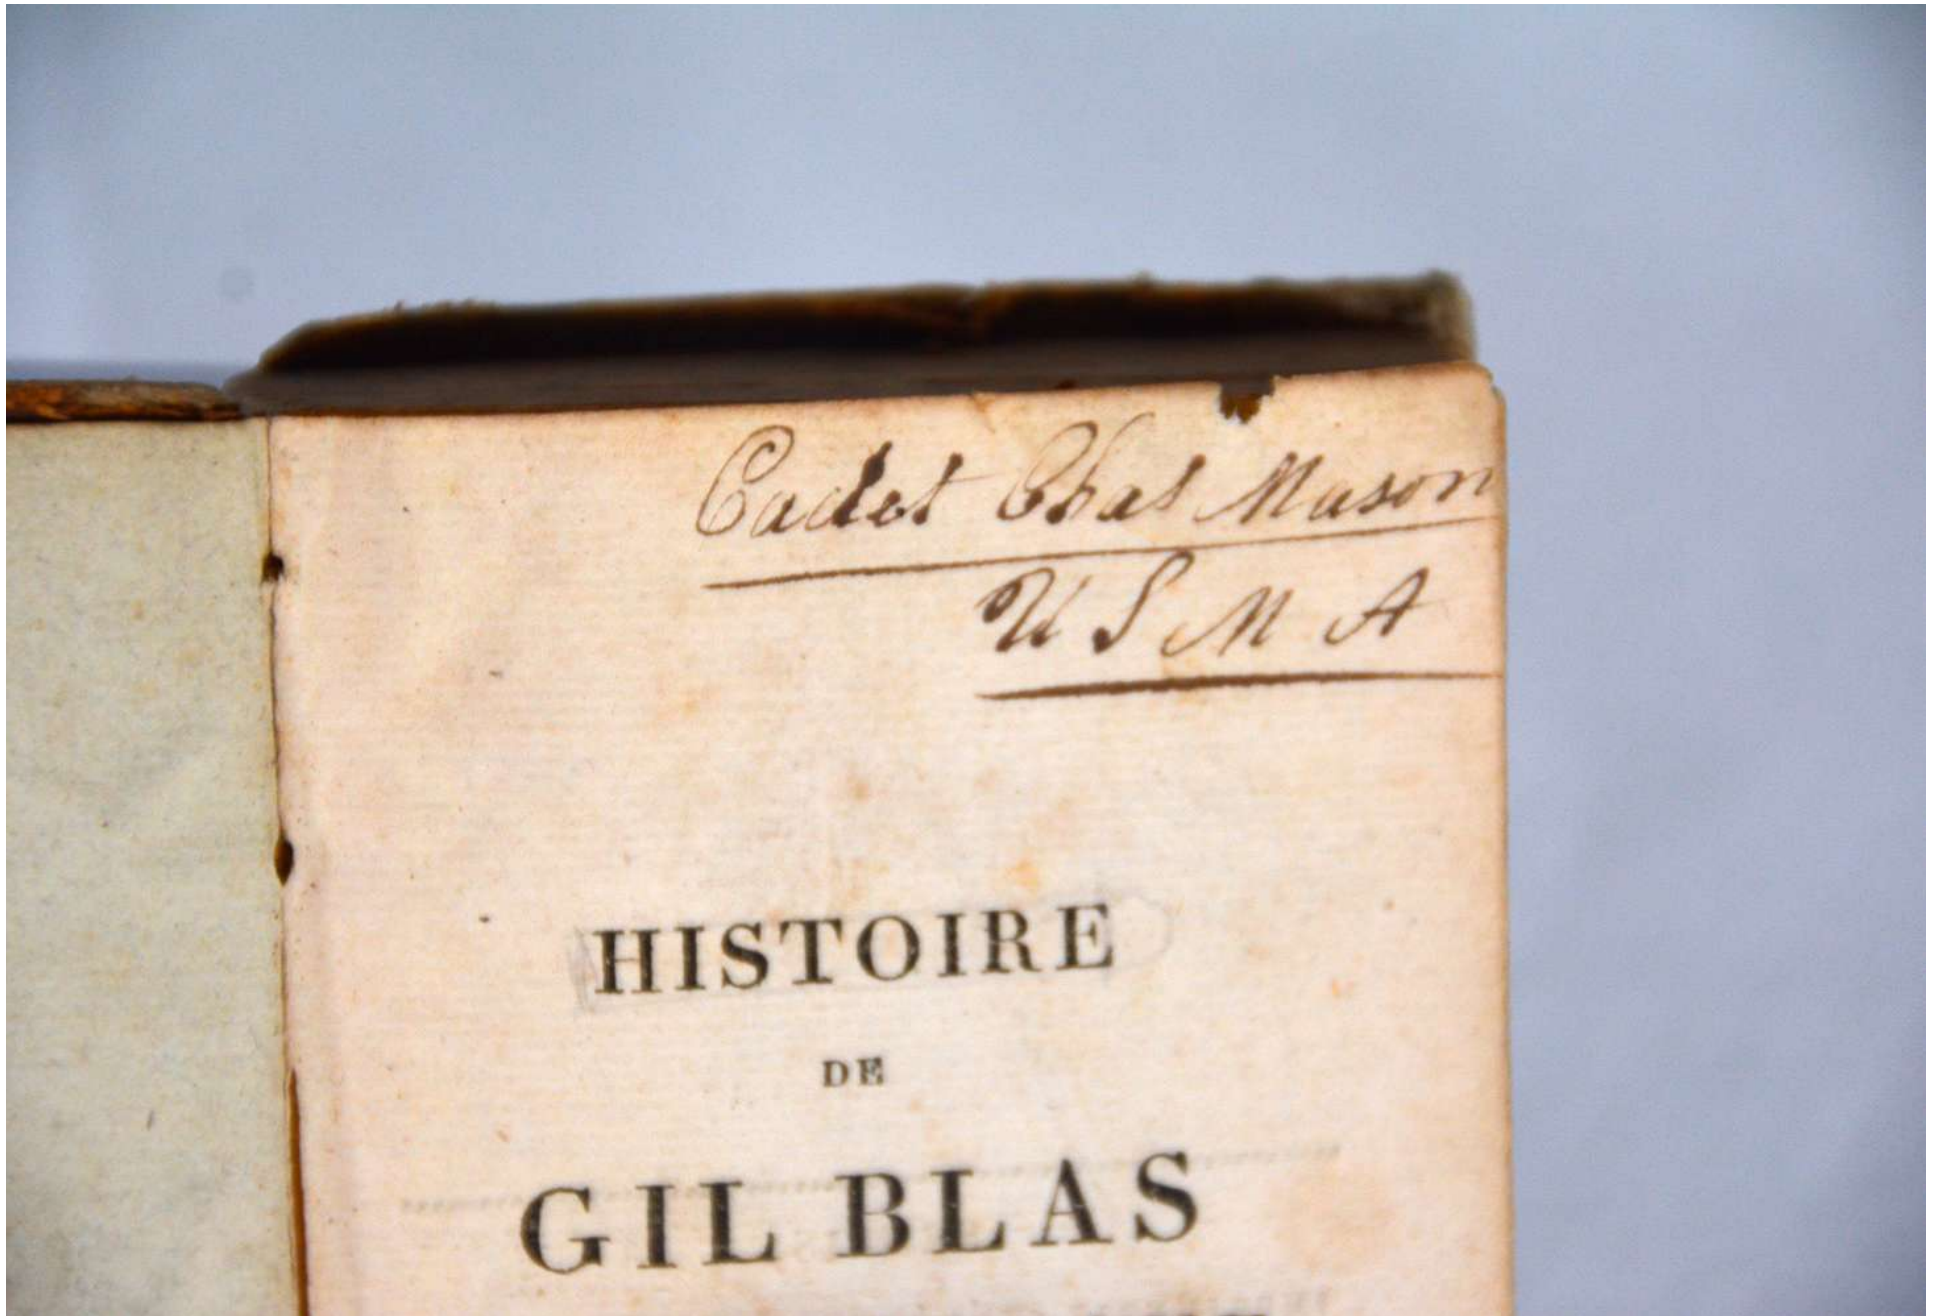 Cadet Chas Mason
U S M A
HISTOIRE
DE
GIL BLAS